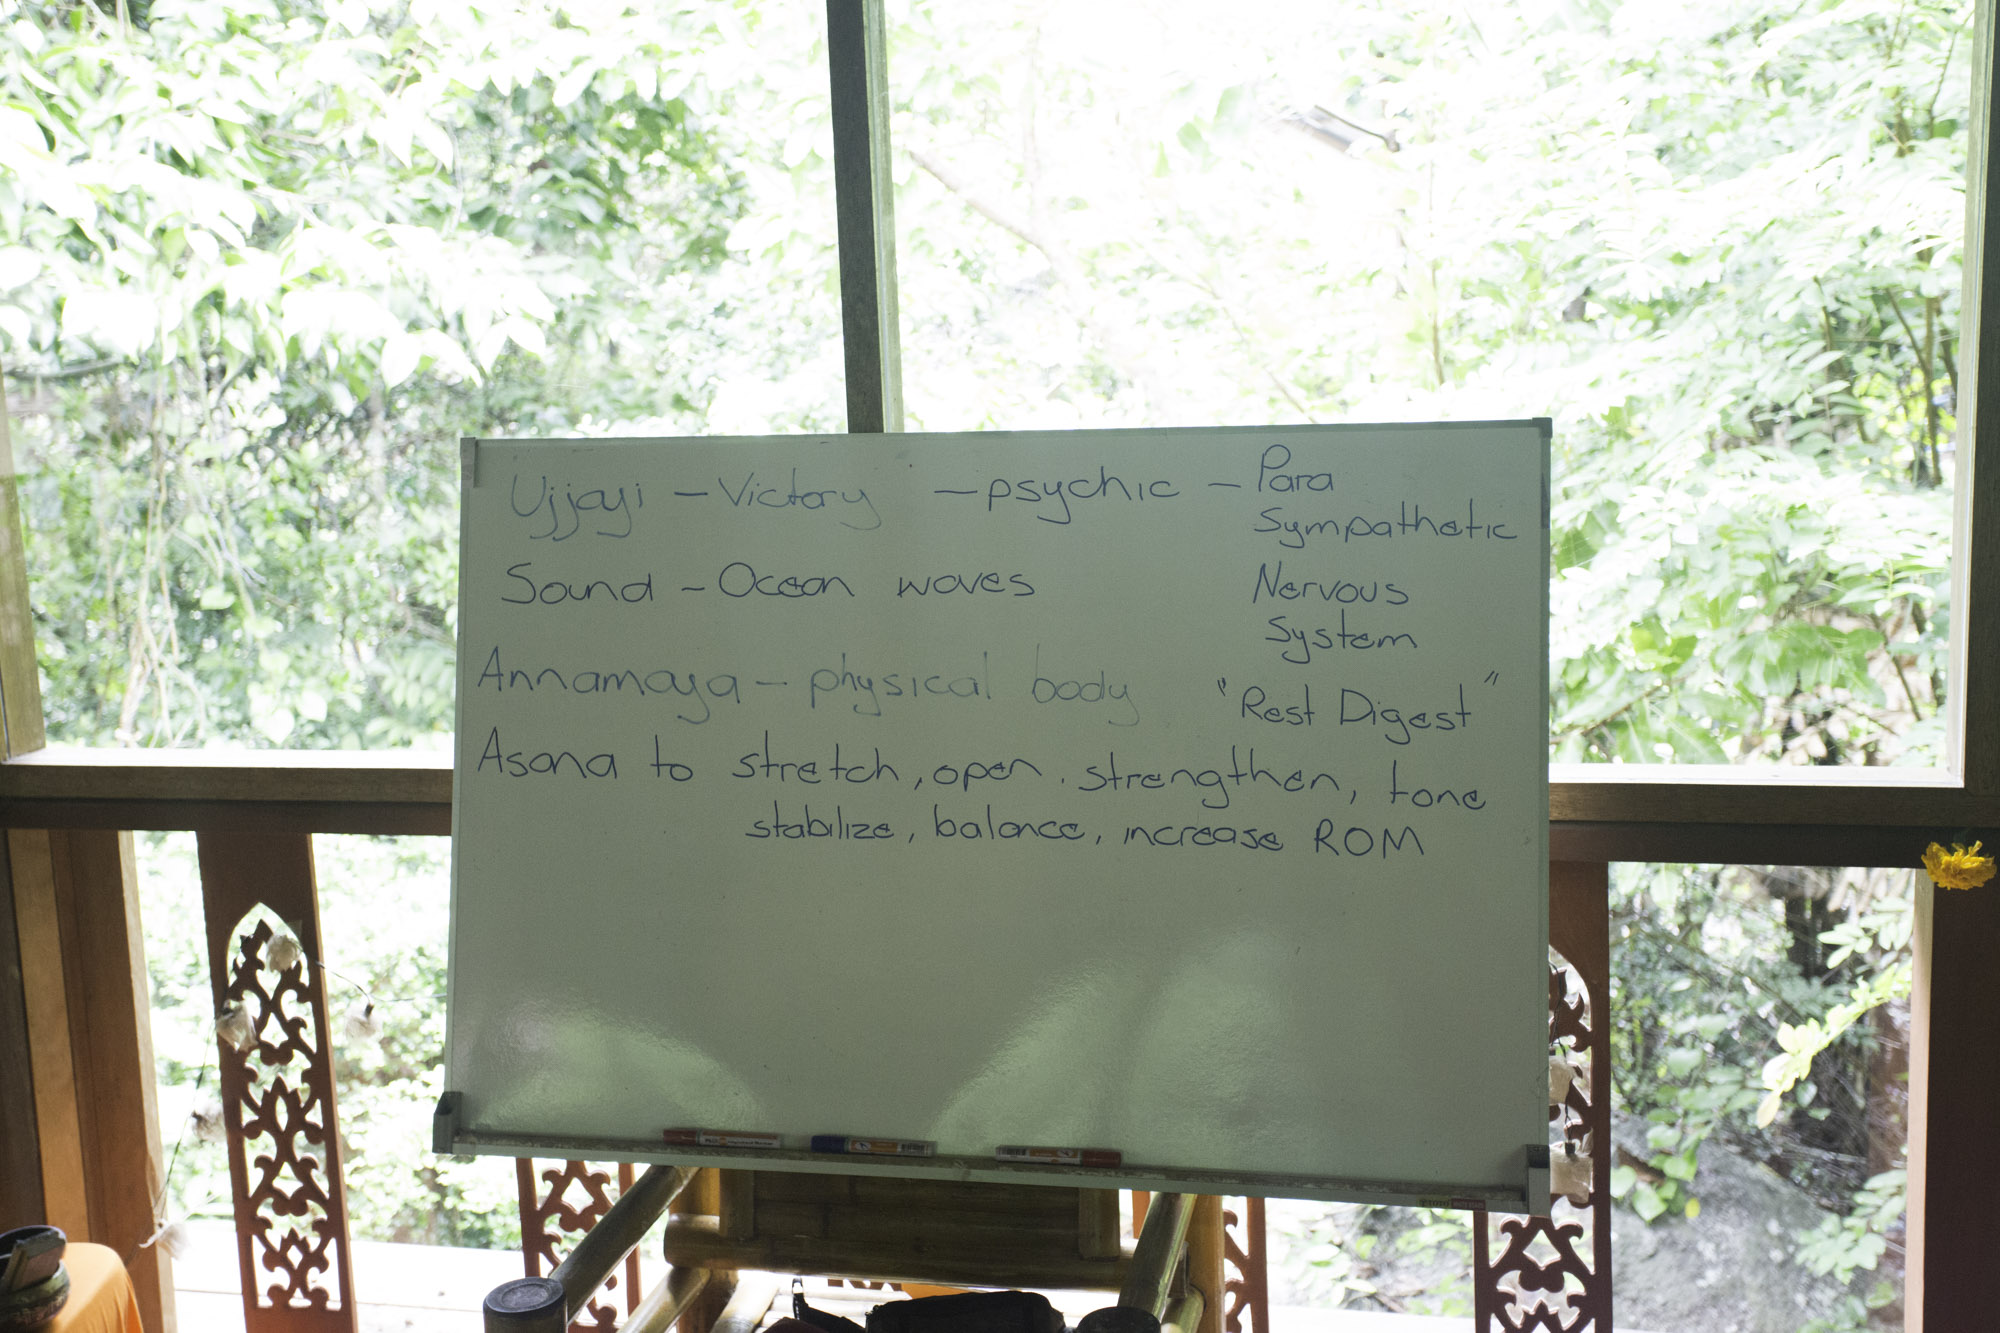 Ujjayi – Victory – psychic – Para
Sympathetic
Sound – Ocean waves
Nervous
System
Annamaya – physical body
"Rest Digest"
Asana to stretch, open, strengthen, tone
stabilize, balance, increase ROM